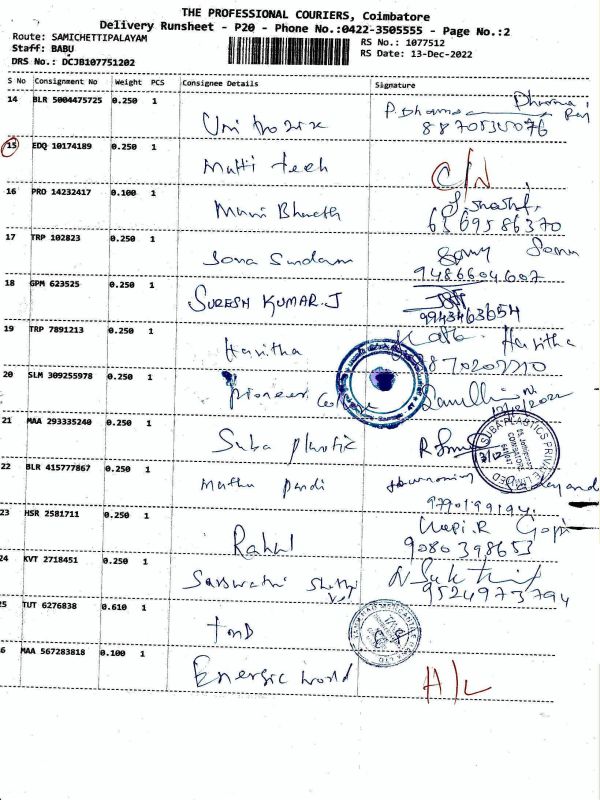 THE PROFESSIONAL COURIERS, Coimbatore
Delivery Runsheet - P20 - Phone No.:0422-3505555 - Page No.:2
Route: SAMICHETTIPALAYAM
RS No.: 1077512
Staff: BABU
RS Date: 13-Dec-2022
DRS No.: DCJB107751202
S No Consignment No Weight PCS Consignee Details Signature
14 BLR 5004475725 0.250 1
P. Dharma
8870535076
15 EDQ 10174189 0.250 1 Mutti tech C/N
16 PRO 14232417 0.100 1 Muni Bharath
6369586370
17 TRP 102823 0.250 1 Sona Sundaram
9486604607
18 GPM 623525 0.250 1 SURESH KUMAR.J
9943463654
19 TRP 7891213 0.250 1 Haritha Haritha
20 SLM 309255978 0.250 1 Pioneer College
21 MAA 293335240 0.250 1 Suba plastic
SUBA PLASTICS PRIVATE LIMITED
22 BLR 415777867 0.250 1 Muthu Pandi
23 HSR 2581711 0.250 1 Rahul Gopi.R Gopi
9080398653
24 KVT 2718451 0.250 1 Sarswathi
9524973794
25 TUT 6276838 0.610 1 TMB
6 MAA 567283818 0.100 1 Energic World H/L